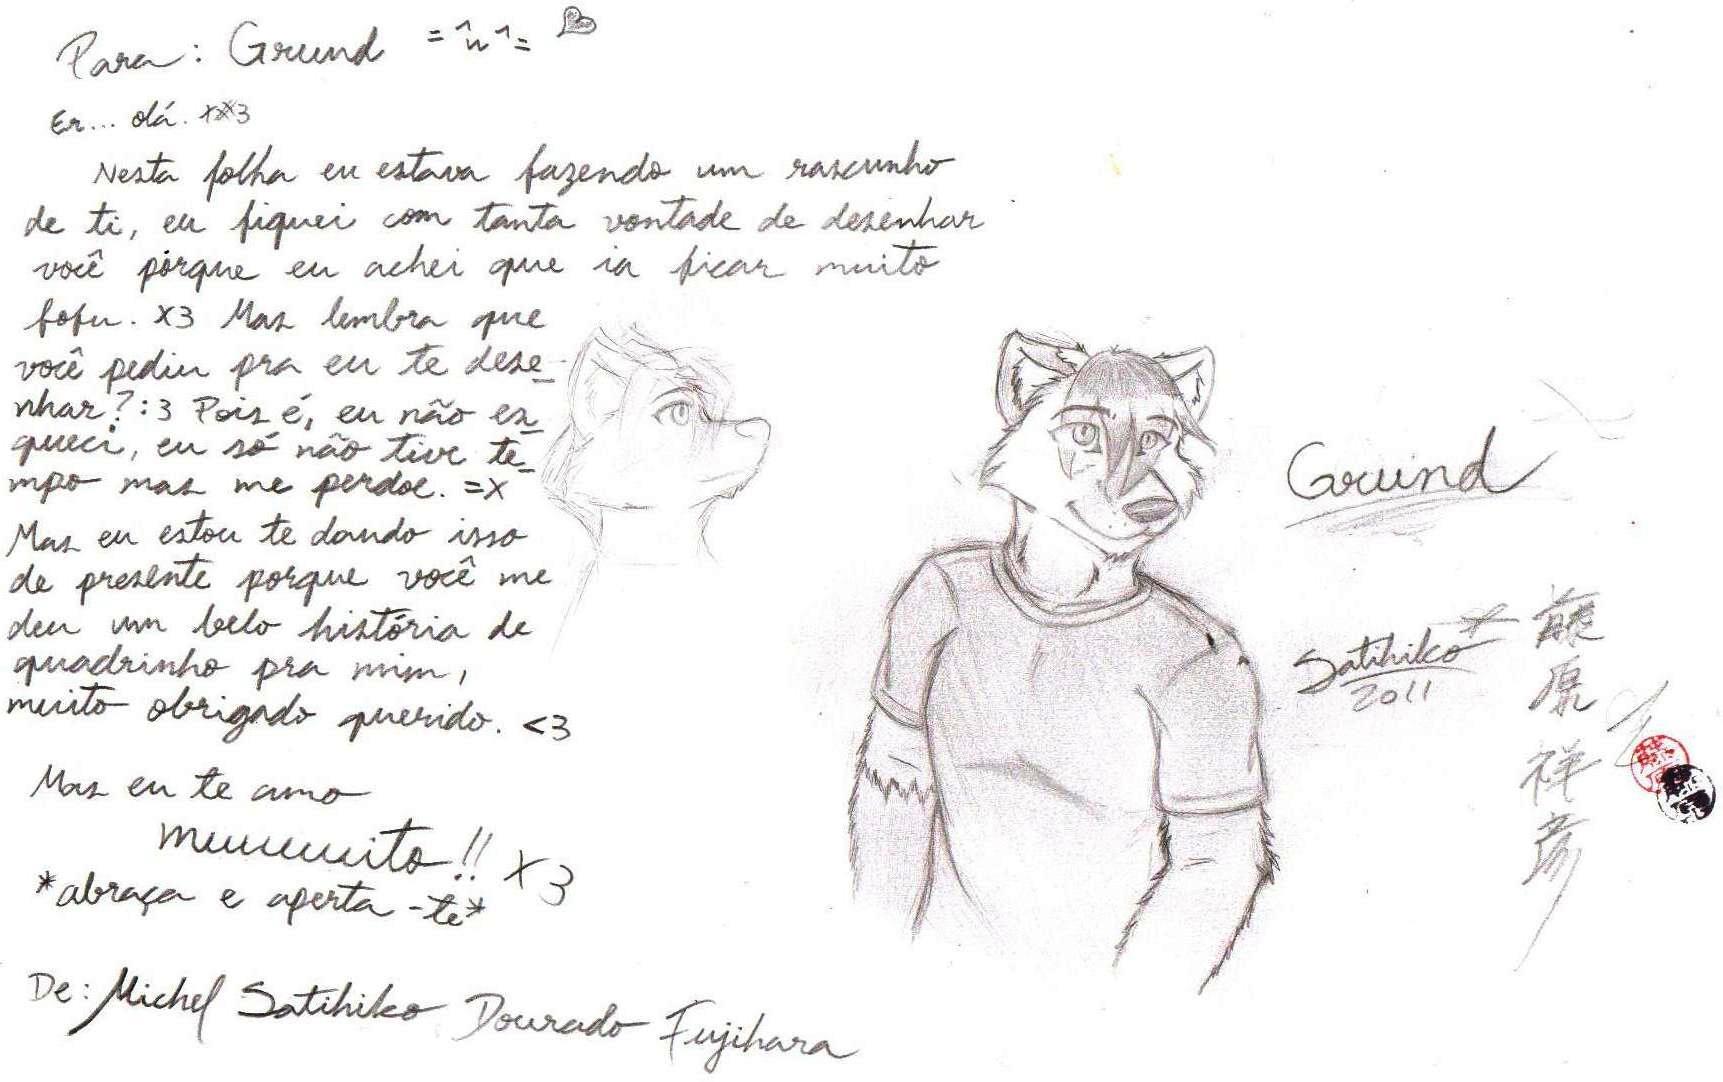 Para: Grund =^u^=
Er... olá. xxx3
Nesta folha eu estava fazendo um rascunho
de ti, eu fiquei com tanta vontade de desenhar
você porque eu achei que ia ficar muito
fofu. x3 Mas lembra que
você pediu pra eu te dese-
nhar? :3 Pois é, eu não es-
queci, eu só não tive te-
mpo mas me perdoe. =x
Mas eu estou te dando isso
de presente porque você me
deu um belo história de
quadrinho pra mim,
muito obrigado querido. <3
Mas eu te amo
muuuuuuito!! x3
*abraça e aperta-te*
De: Michel Satihiko Dourado Fujihara
Grund
Satihiko
2011
藤原祥彦